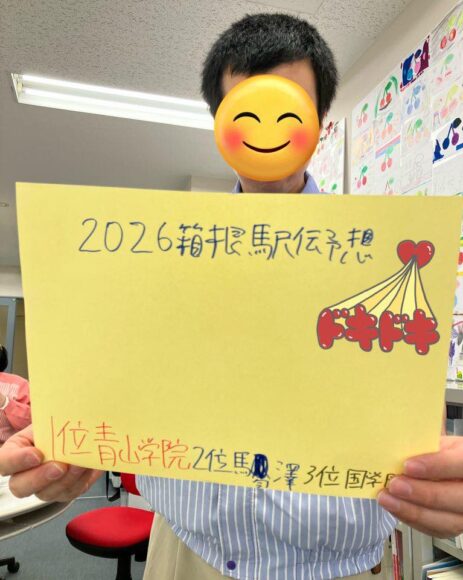 2026箱根駅伝予想
ドキドキ
1位青山学院2位駒澤3位国学